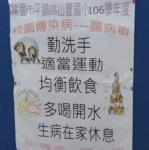 桃園市平鎮區山豐國小106學年度
校園傳染病---腸病毒
勤洗手
適當運動
均衡飲食
多喝開水
生病在家休息